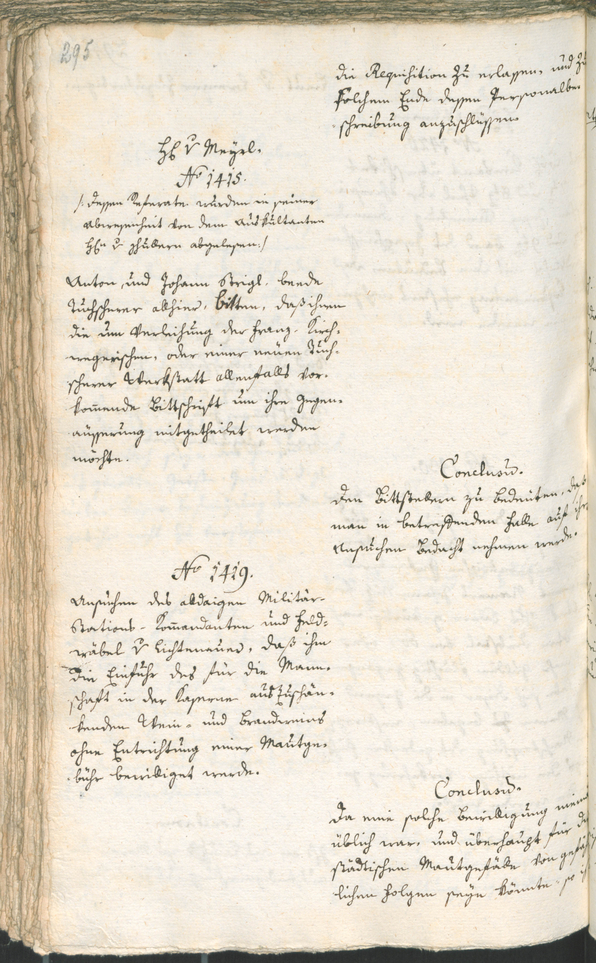 295
die Requisition zu erlassen, und zu
solchem Ende dessen Personalbe-
schreibung anzuschlüssen.
H: v Meyrl.
No 1415.
/: dessen Referate wurden in seiner
Abwesenheit von dem Auskultanten
H: v Zhubern abgelesen :/
Anton, und Johann Strigl, beede
Tuchscherer alhier, bitten, daß ihnen
die um Verleihung der Franz- Kirch-
wegerischen, oder einer neuen Tuch-
scherer Werkstatt allenfalls vor-
kommende Bittschrift um ihre Gegen-
äusserung mitgetheilet werden
möchte.
Conclusum.
Den Bittstellern zu bedeuten, daß
man in betreffenden Falle auf ihr
Ansuchen Bedacht nehmen werde.
No 1419.
Ansuchen des aldaigen Militär-
Stations-Kommandanten und Feld-
wäbel v Lichtenauer, daß ihm
die Einfuhr des für die Mann-
schaft in der Kaserne auszuschän-
kenden Wein- und Brandweins
ohne Entrichtung einer Mautge-
bühr bewilliget werde.
Conclusum.
Da eine solche Bewilligung niem
üblich war, und überhaupt für die
städtischen Mautgefälle von gefähr
lichen Folgen seyn könnte, so